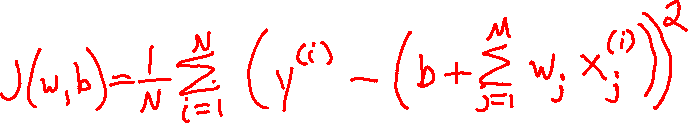 J(w,b) = \frac{1}{N} \sum_{i=1}^{N} \left( y^{(i)} - \left( b + \sum_{j=1}^{M} w_j x_j^{(i)} \right) \right)^2